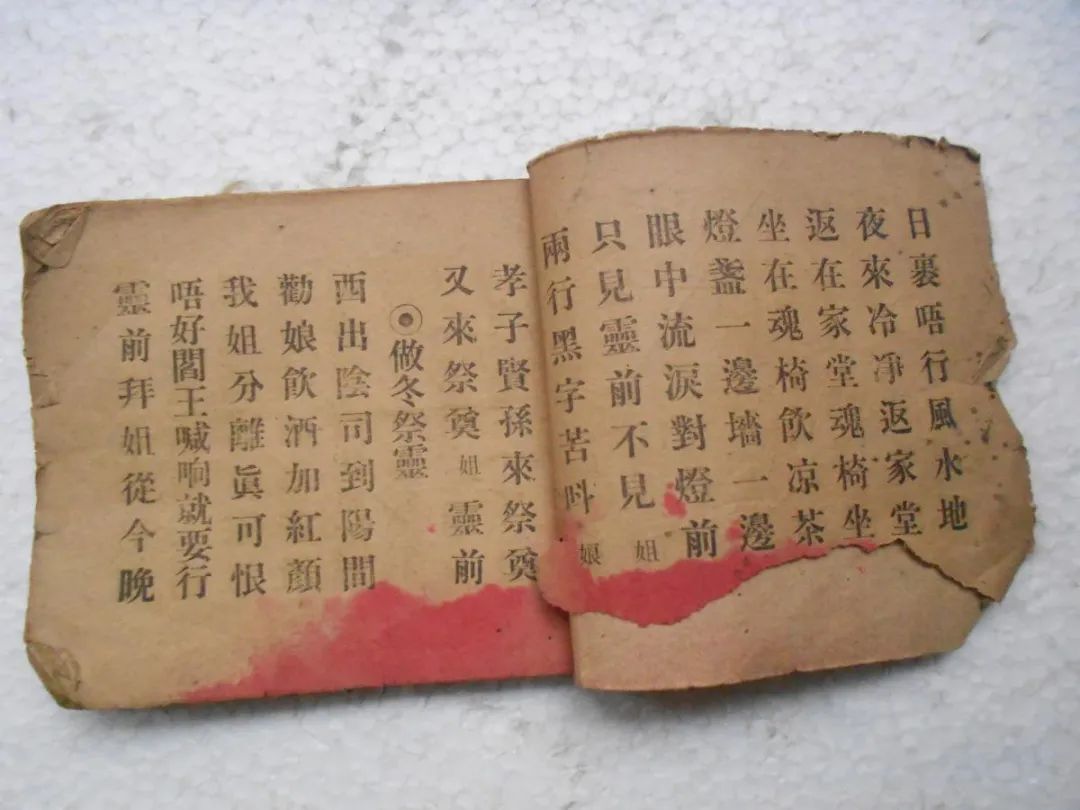 日裏唔行風水地
夜來冷凈返家堂
返在家堂魂椅坐
坐在魂椅飲凉茶
燈盞一邊墻一邊
眼中流淚對燈前
只見靈前不見姐
兩行黑字苦呌娘
孝子賢孫來祭奠
又來祭奠姐靈前
◉做冬祭靈
西出陰司到陽間
勸娘飲酒加紅顏
我姐分離眞可恨
唔好閻王喊响就要行
靈前拜姐從今晚